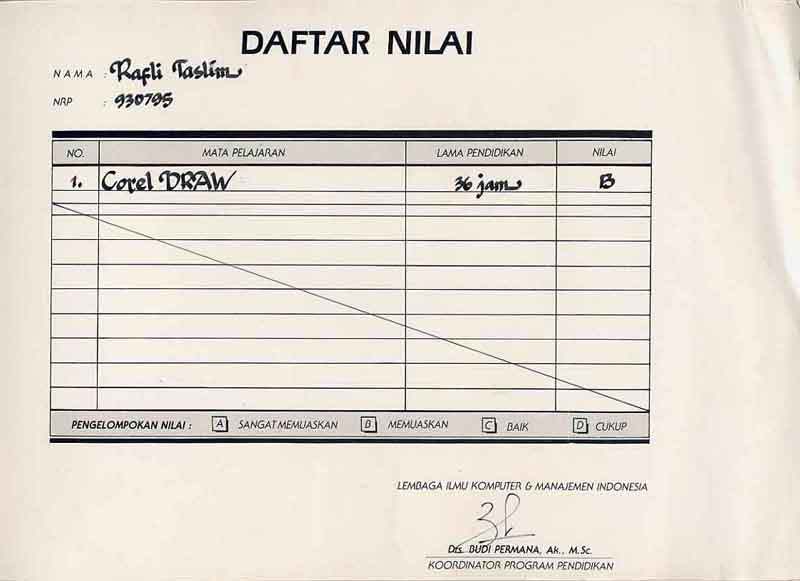 DAFTAR NILAI
NAMA : Rafli Taslim
NRP : 930795
NO. MATA PELAJARAN LAMA PENDIDIKAN NILAI
1. Corel DRAW 36 jam B
PENGELOMPOKAN NILAI : A SANGAT MEMUASKAN B MEMUASKAN C BAIK D CUKUP
LEMBAGA ILMU KOMPUTER & MANAJEMEN INDONESIA
Drs. BUDI PERMANA, Ak., M.Sc.
KOORDINATOR PROGRAM PENDIDIKAN